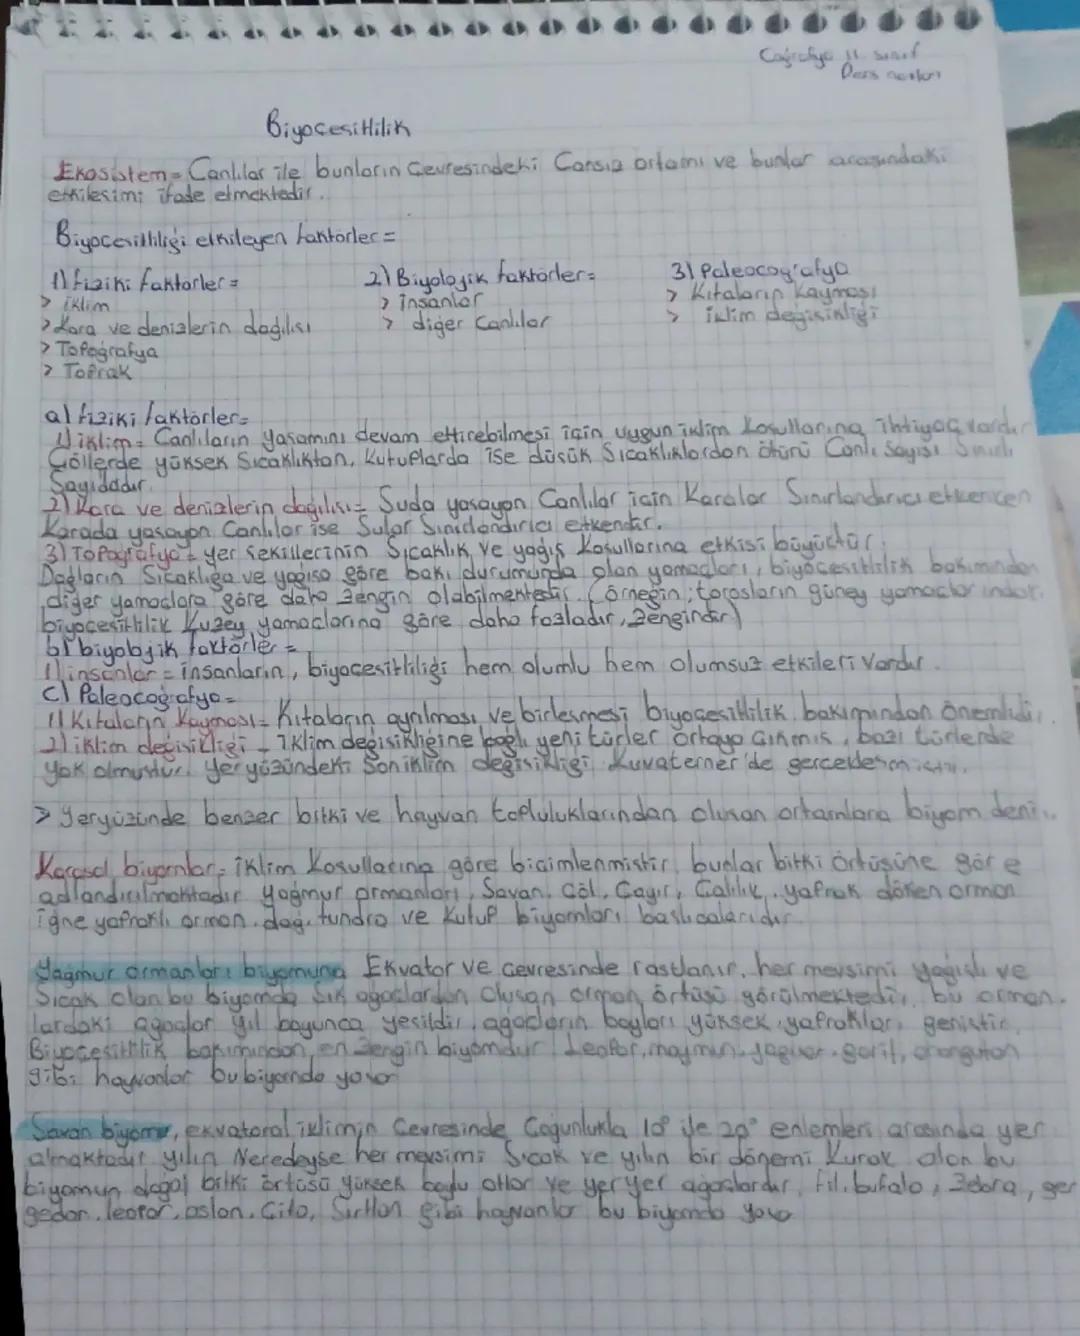 Coğrafya 11. sınıf
Ders notları
Biyoçeşitlilik
Ekosistem = Canlılar ile bunların çevresindeki Cansız ortamı ve bunlar arasındaki
etkileşimi ifade etmektedir.
Biyoçeşitliliği etkileyen faktörler =
1) fiziki faktörler =
> iklim
> Kara ve denizlerin dağılışı
> Topoğrafya
> Toprak
2) Biyolojik faktörler =
> insanlar
> diğer Canlılar
3) Paleocoğrafya
> Kıtaların Kayması
> iklim değişikliği
a) fiziki faktörler =
1) iklim = Canlıların yaşamını devam ettirebilmesi için uygun iklim koşullarına ihtiyaç vardır
Çöllerde yüksek Sıcaklıktan, Kutuplarda ise düşük Sıcaklıklardan ötürü Canlı Sayısı Sınırlı
Sayıdadır.
2) Kara ve denizlerin dağılışı = Suda yaşayan Canlılar için Karalar Sınırlandırıcı etkenken
Karada yaşayan Canlılar ise Sular Sınırlandırıcı etkendir.
3) Topoğrafya = yer şekillerinin Sıcaklık ve yağış koşullarına etkisi büyüktür.
Dağların Sıcaklığa ve yağışa göre bakı durumunda olan yamaçları, biyoçeşitlilik bakımından
diğer yamaçlara göre daha zengin olabilmektedir. (örneğin; torosların güney yamaçlarındar.
biyoçeşitlilik Kuzey yamaçlarına göre daha fazladır, zengindir)
b) biyolojik faktörler =
1) insanlar = insanların, biyoçeşitliliği hem olumlu hem olumsuz etkileri vardır.
C) Paleocoğrafya =
1) Kıtaların Kayması = Kıtaların ayrılması ve birleşmesi biyoçeşitlilik bakımından önemlidir.
2) iklim değişikliği = iklim değişikliğine bağlı yeni türler ortaya çıkmış, bazı türlerde
yok olmuştur. Yeryüzündeki Son iklim değişikliği Kuvaterner'de gerçekleşmiştir.
> Yeryüzünde benzer bitki ve hayvan topluluklarından oluşan ortamlara biyom denir.
Karasal biyomlar = iklim koşullarına göre biçimlenmiştir bunlar bitki örtüsüne göre
adlandırılmaktadır yağmur ormanları, Savan, Çöl, Çayır, Çalılık, yaprak döken orman
iğne yapraklı orman, dağ, tundra ve Kutup biyomları başlıcalarıdır.
Yağmur ormanları biyomuna Ekvator ve çevresinde rastlanır, her mevsimi yağışlı ve
Sıcak olan bu biyomda Sık ağaçlardan oluşan orman örtüsü görülmektedir, bu orman-
lardaki ağaçlar yıl boyunca yeşildir, ağaçların boyları yüksek, yaprakları geniştir.
Biyoçeşitlilik bakımından en zengin biyomdur. Leopar, maymun, jaguar, goril, orangutan
gibi hayvanlar bu biyomda yaşar
Savan biyomu, ekvatoral iklimin Çevresinde Çoğunlukla 10° ile 20° enlemleri arasında yer
almaktadır yılın Neredeyse her mevsimi Sıcak ve yılın bir dönemi Kurak olan bu
biyomun doğal bitki örtüsü yüksek boylu otlar ve yer yer ağaçlardır, fil, bufalo, Zebra, ger
gedan, leopar, aslan, Çita, Sırtlan gibi hayvanlar bu biyomda yaşar